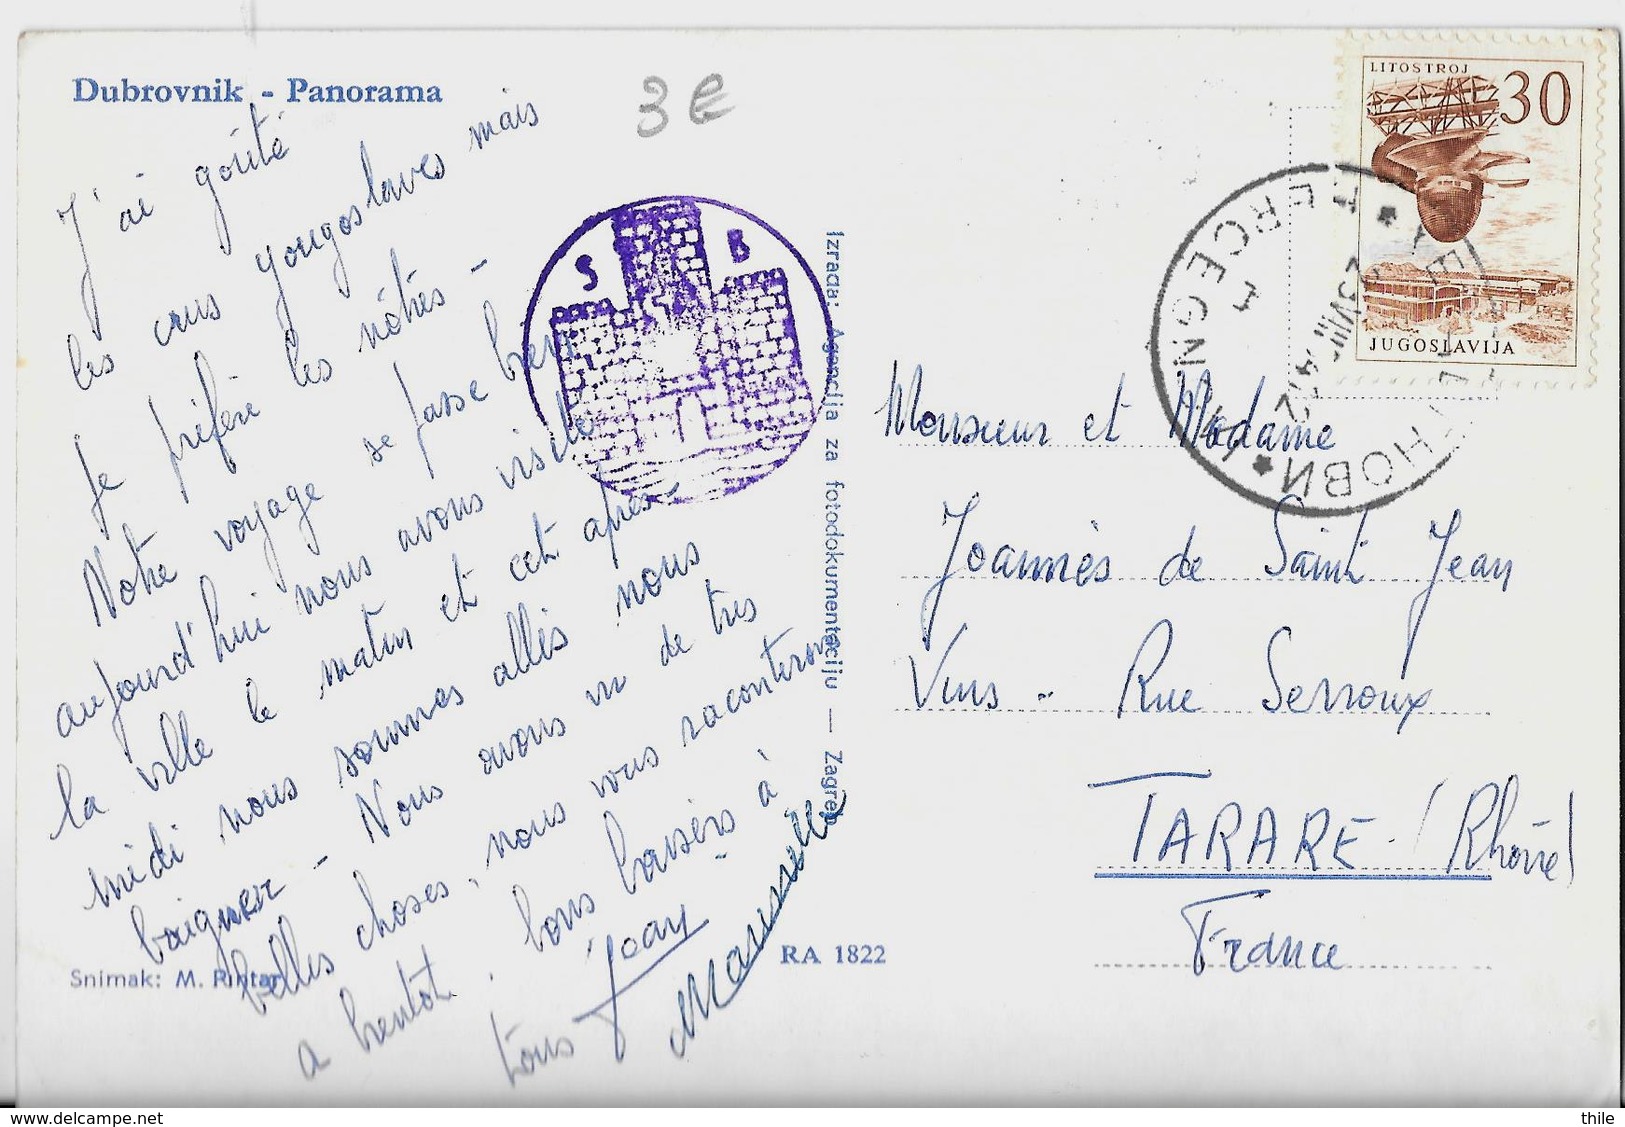 Dubrovnik - Panorama
3 €
J'ai goûté
les crus yougoslaves mais
je préfère les nôtres -
Notre voyage se passe bien
aujourd'hui nous avons visité
la ville le matin et cet après-
midi nous sommes allés nous
baigner - Nous avons vu de très
belles choses. nous vous raconterons
a bientôt. bons baisers à
tous Jean
Snimak: M. Pintar
S B
Izrada: Agencija za fotodokumentaciju — Zagreb
RA 1822
LITOSTROJ
30
JUGOSLAVIJA
HERCEGNOVI
Monsieur et Madame
Joannès de Saint Jean
Vins - Rue Serroux
TARARE (Rhône)
France
www.delcampe.net
thile